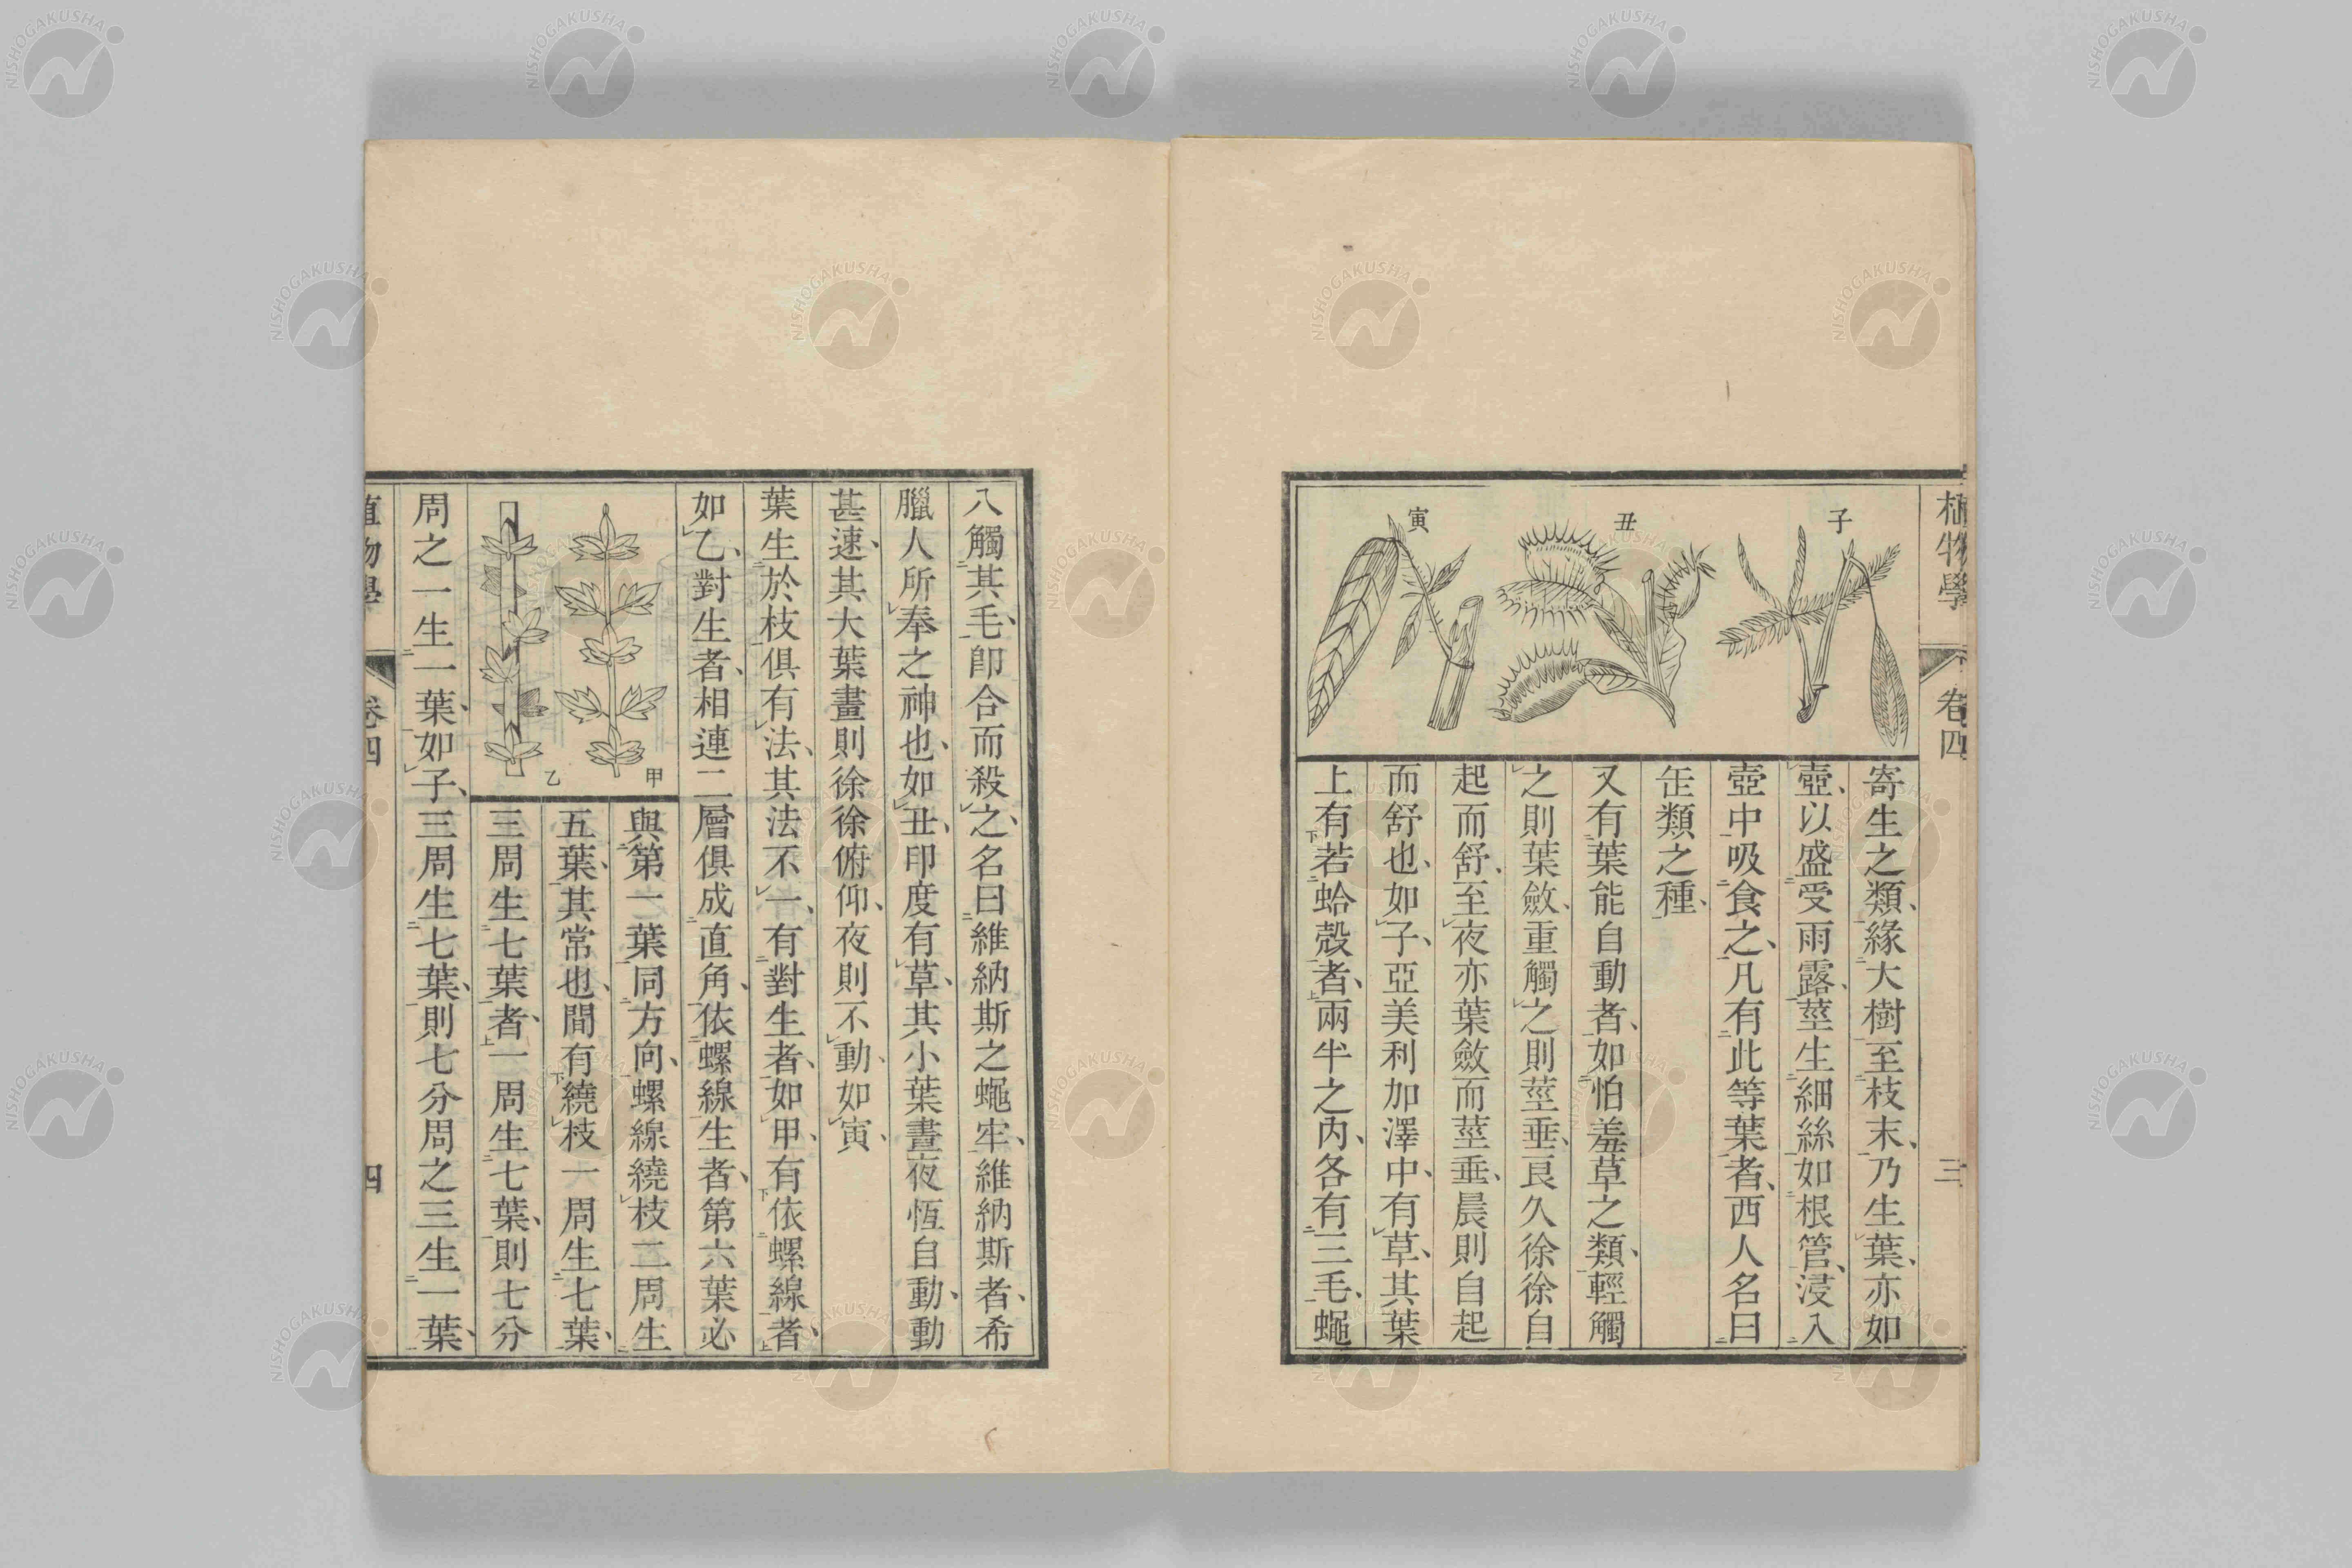 植物學
卷四
三
子
丑
寅
寄生之類、緣大樹至枝末、乃生葉、亦如
壺、以盛受雨露、莖生細絲如根管、浸入
壺中吸食之、凡有此等葉者、西人名曰
缶類之種、
又有葉能自動者、如怕羞草之類、輕觸
之則葉斂、重觸之則莖垂、良久徐徐自
起而舒、至夜亦葉斂而莖垂、晨則自起
而舒也、如子、亞美利加澤中、有草、其葉
上有若蛤殼者、兩半之內、各有三毛、蠅
八觸其毛、卽合而殺之、名曰維納斯之蠅牢、維納斯者、希
臘人所奉之神也、如丑、印度有草、其小葉晝夜恆自動、動
甚速、其大葉晝則徐徐俯仰、夜則不動、如寅、
葉生於枝俱有法、其法不一、有對生者、如甲、有依螺線者、
如乙、對生者、相連二層俱成直角、依螺線生者、第六葉必
甲
乙
與第一葉同方向、螺線繞枝二周生
五葉、其常也、間有繞枝一周生七葉、
三周生七葉者、一周生七葉、則七分
周之一生一葉、如子、三周生七葉、則七分周之三生一葉、
植物學
卷四
四
NISHOGAKUSHA